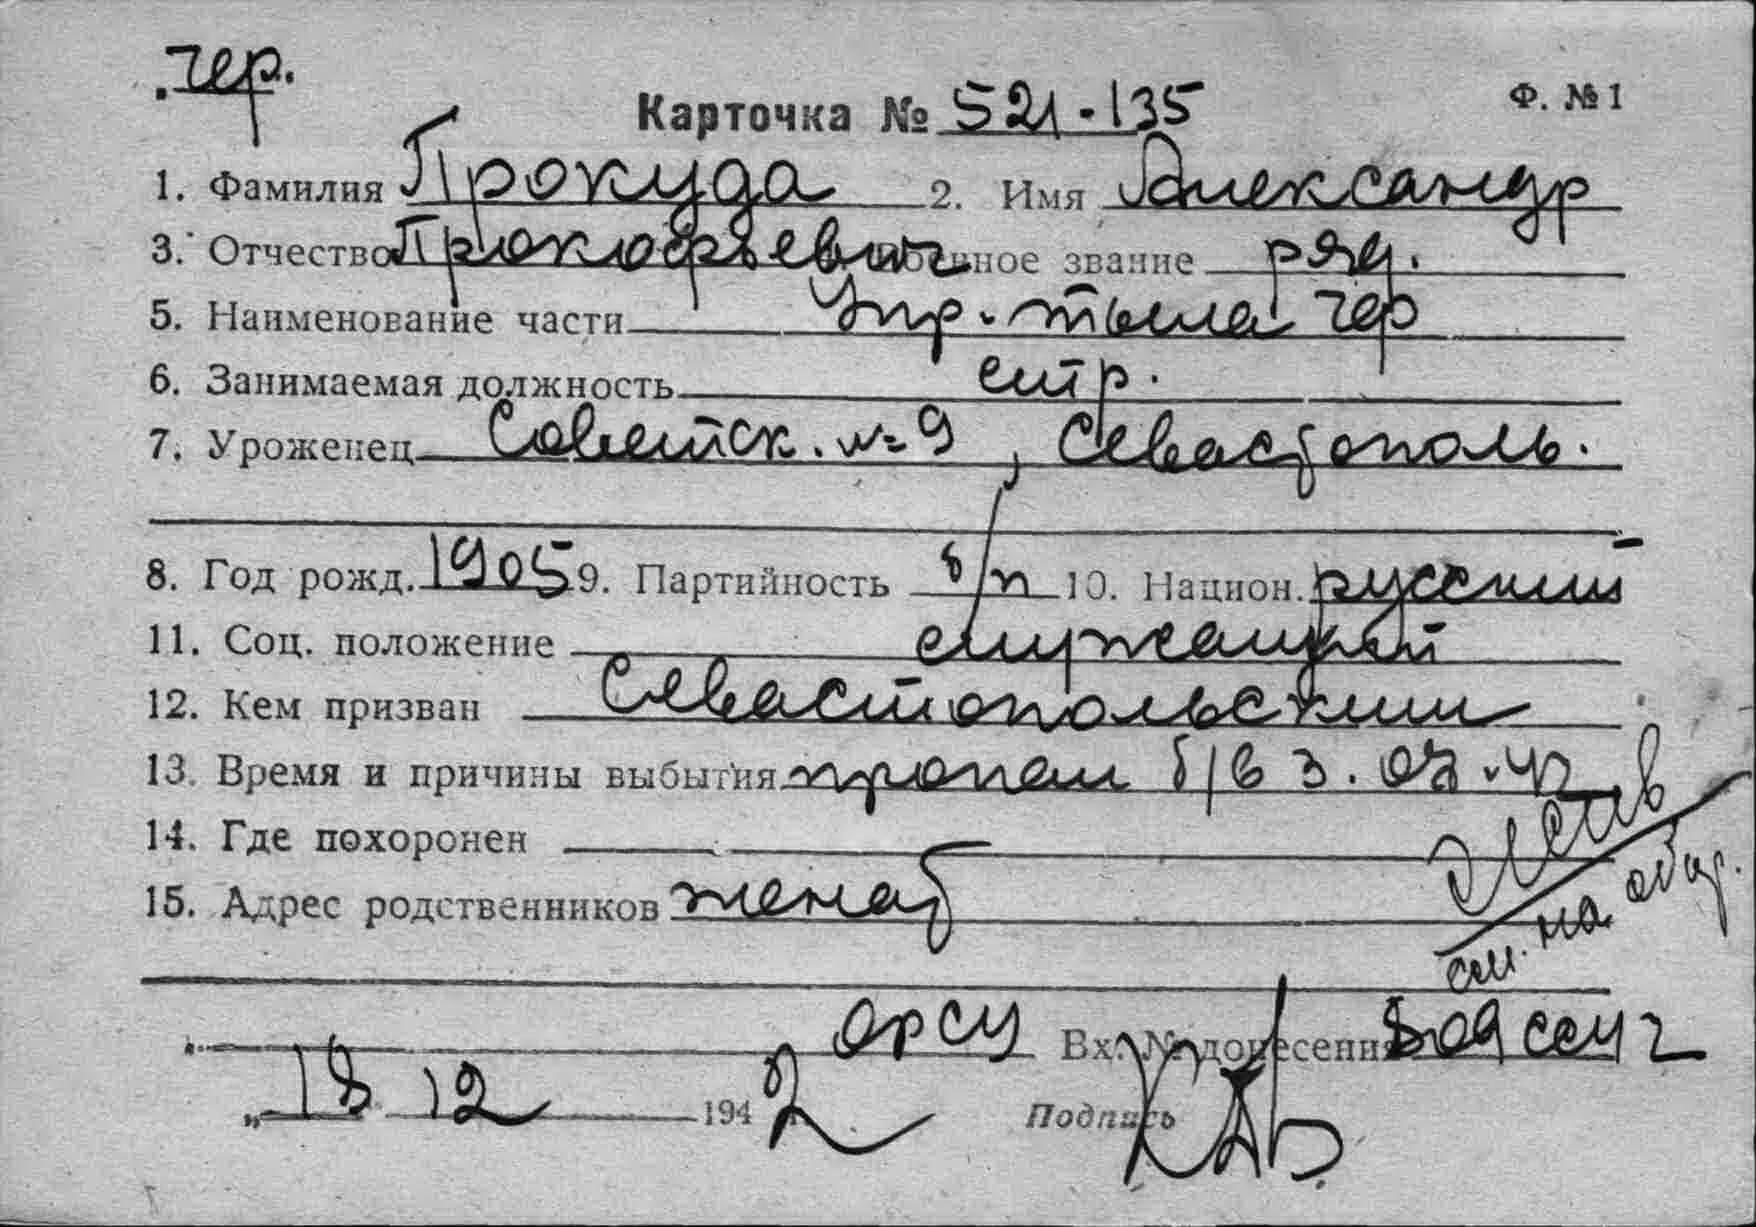 чер.
Карточка № 521-135 Ф. № 1
1. Фамилия Прокуда 2. Имя Александр
3. Отчество Прокофьевич Военное звание ряд.
5. Наименование части Упр. тыла чер
6. Занимаемая должность стр.
7. Уроженец Советск. № 9, Севастополь.
8. Год рожд. 1905 9. Партийность б/п 10. Национ. русский
11. Соц. положение служащий
12. Кем призван Севастопольским
13. Время и причины выбытия пропал б/в 3. 07. 42
14. Где похоронен
15. Адрес родственников женат
см. на обор.
Вх. № донесения
„ 18 12 1942
Подпись